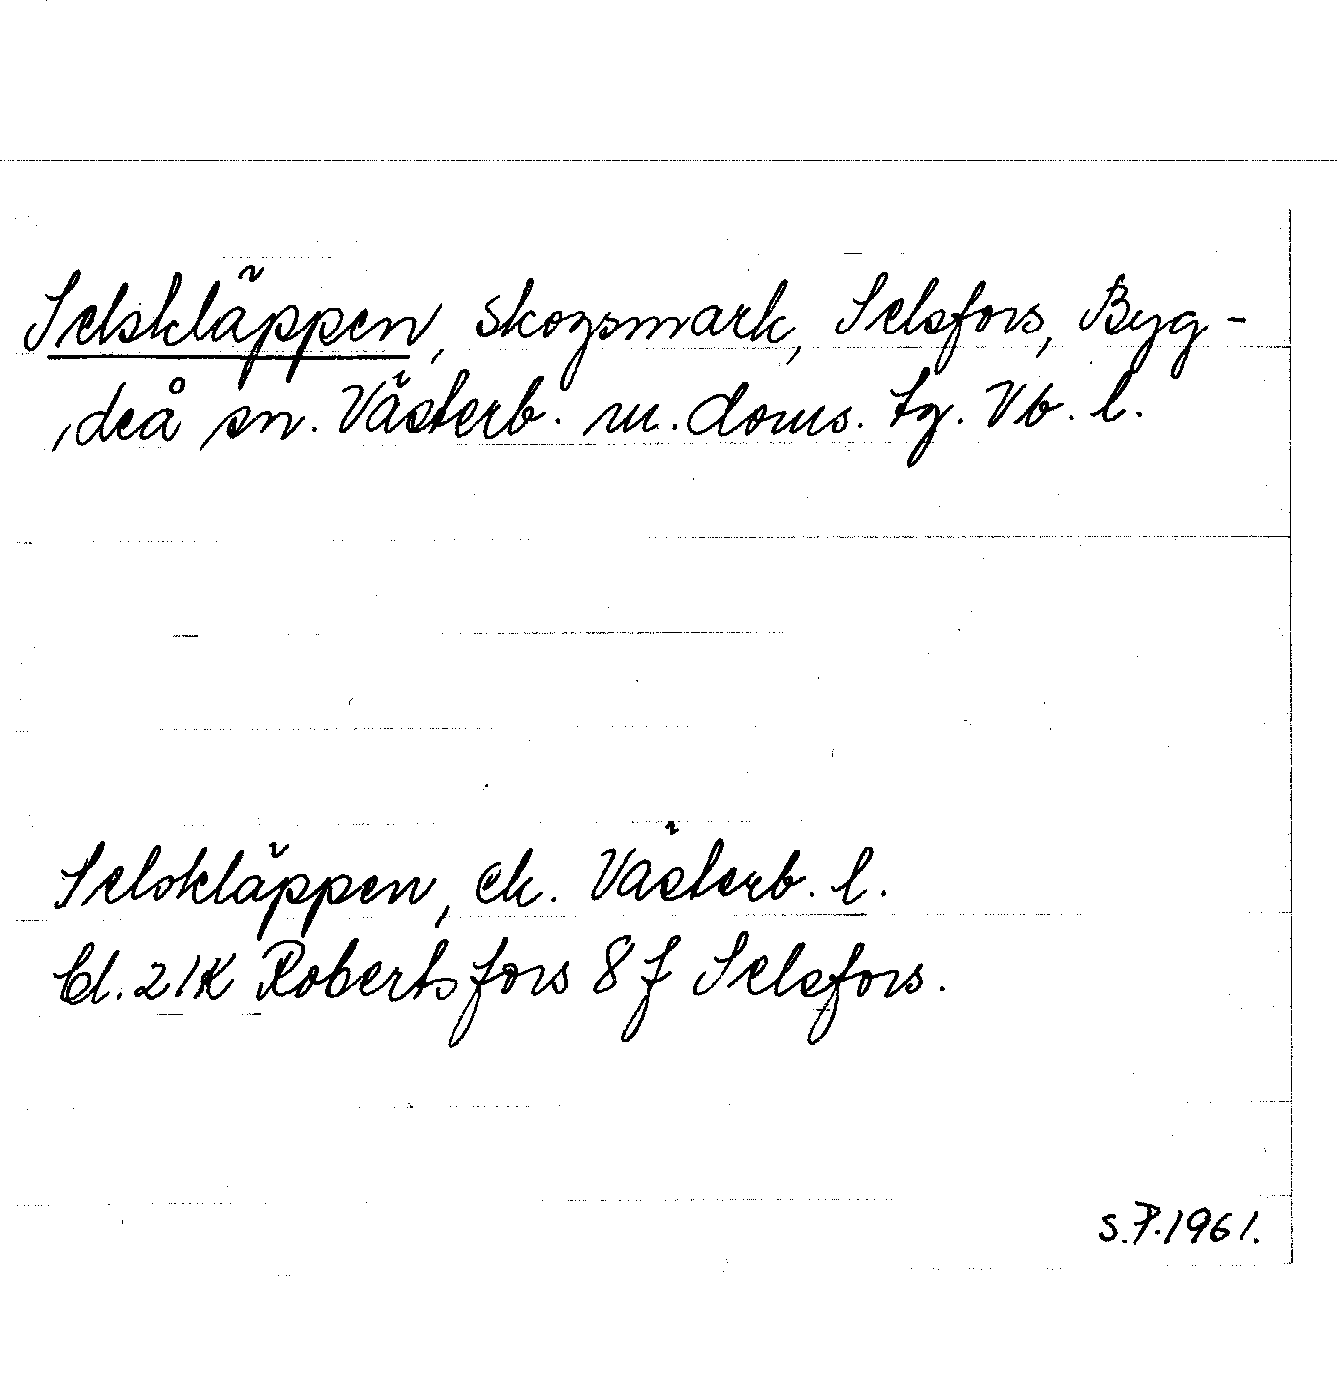 Selskläppen, skogsmark, Selsfors, Byg-
deå sn. Västerb. m. doms. tg. Vb. l.
Selskläppen, ek. Västerb. l.
Bl. 21K Robertsfors 8 f Selsfors.
S.P.1961.